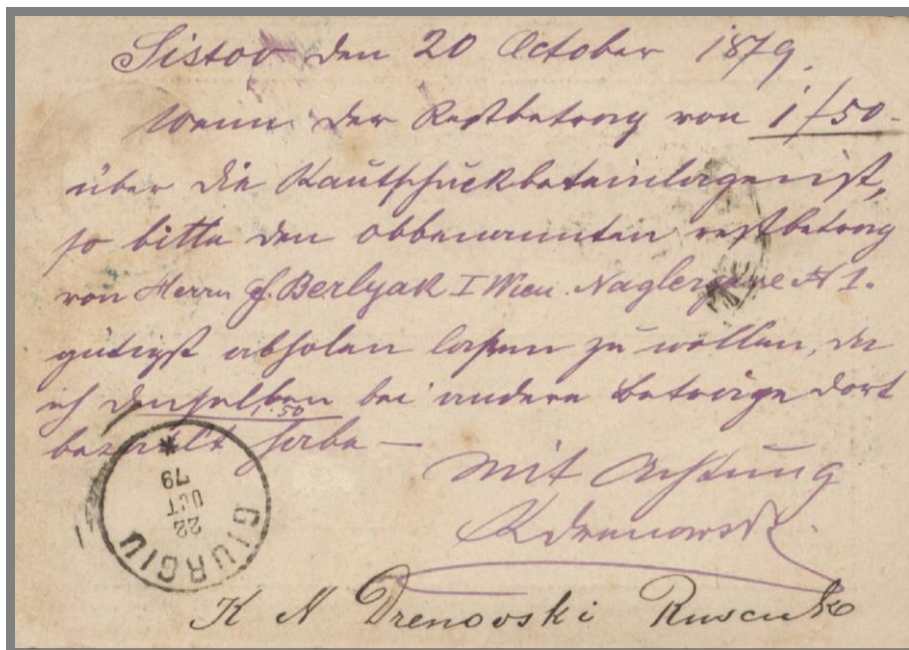 Sistov den 20 October 1879.
Wenn der Restbetrag von 1/50-
über die ist,
so bitte den obbenannten restbetrag
von Herrn J. Berlyak I Wien Naglergasse N 1.
gütigst abholen lassen zu wollen, da
ich denselben bei andere Beträge dort
1.50
bezahlt habe —
Mit Achtung
KDrenowski
K N Drenovski Ruscuk
GIURGIU
22
OCT
79